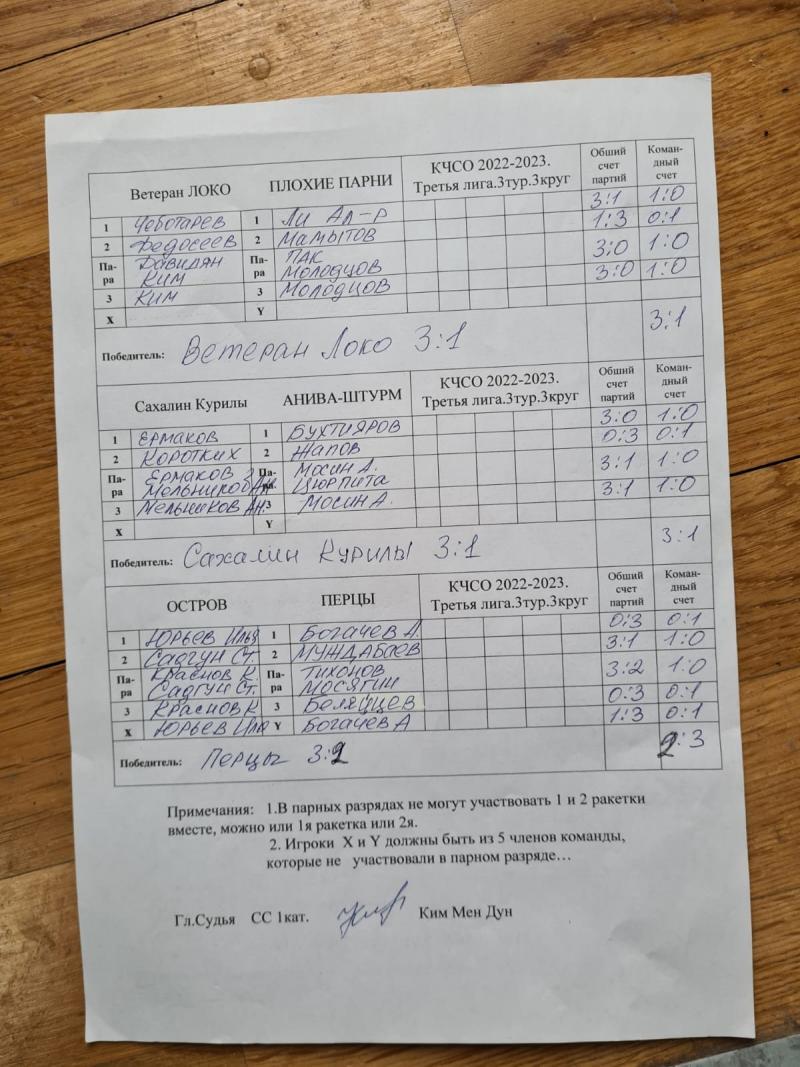 Ветеран ЛОКО ПЛОХИЕ ПАРНИ КЧСО 2022-2023. Третья лига.3тур.3круг Общий счет партий Коман-дный счет
1 Чеботарев 1 Ли Ал-р 3:1 1:0
2 Федосеев 2 Мамытов 1:3 0:1
Па-ра Давидян Ким Па-ра Пак Молодцов 3:0 1:0
3 Ким 3 Молодцов 3:0 1:0
X Y
Победитель: Ветеран Локо 3:1 3:1
Сахалин Курилы АНИВА-ШТУРМ КЧСО 2022-2023. Третья лига.3тур.3круг Общий счет партий Коман-дный счет
1 Ермаков 1 Бухтияров 3:0 1:0
2 Коротких 2 Жапов 0:3 0:1
Па-ра Ермаков Мельников Ан. Па-ра Мосин А. Цюрпита 3:1 1:0
3 Мельников Ан. 3 Мосин А. 3:1 1:0
X Y
Победитель: Сахалин Курилы 3:1 3:1
ОСТРОВ ПЕРЦЫ КЧСО 2022-2023. Третья лига.3тур.3круг Общий счет партий Коман-дный счет
1 Юрьев Илья 1 Богачев А. 0:3 0:1
2 Садгун Ст. 2 Муждабаев 3:1 1:0
Па-ра Краснов К. Садгун Ст. Па-ра Тихонов Мосягин 3:2 1:0
3 Краснов К 3 Беляццев 0:3 0:1
X Юрьев Илья Y Богачев А 1:3 0:1
Победитель: Перцы 3:2 2:3
Примечания: 1.В парных разрядах не могут участвовать 1 и 2 ракетки
вместе, можно или 1я ракетка или 2я.
2. Игроки X и Y должны быть из 5 членов команды,
которые не участвовали в парном разряде…
Гл.Судья СС 1кат. Ким Мен Дун